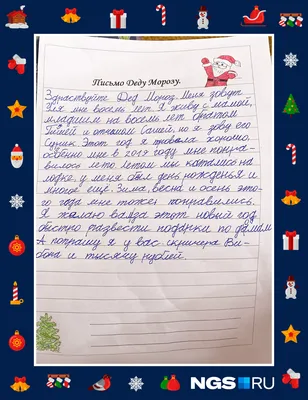 Письмо Деду Морозу.
Здраствуйте Дед Мороз. Меня зовут
мне восемь лет. Я живу с мамой,
младшим на восемь лет братом
и отчимом Сашей, но я зову его
Этот год я провела хорошо.
особенно мне в 2019 году мне понра-
вилось лето летом мы катались на
лодке, у меня был день рожденья и
многое ещё. Зима, весна и осень это-
го года мне тоже понравились.
Я желаю вам в этот новый год
быстро развести подарки по домам
А попрошу я у вас скринчера Ви-
бона и тысячу рублей.
NGS.RU